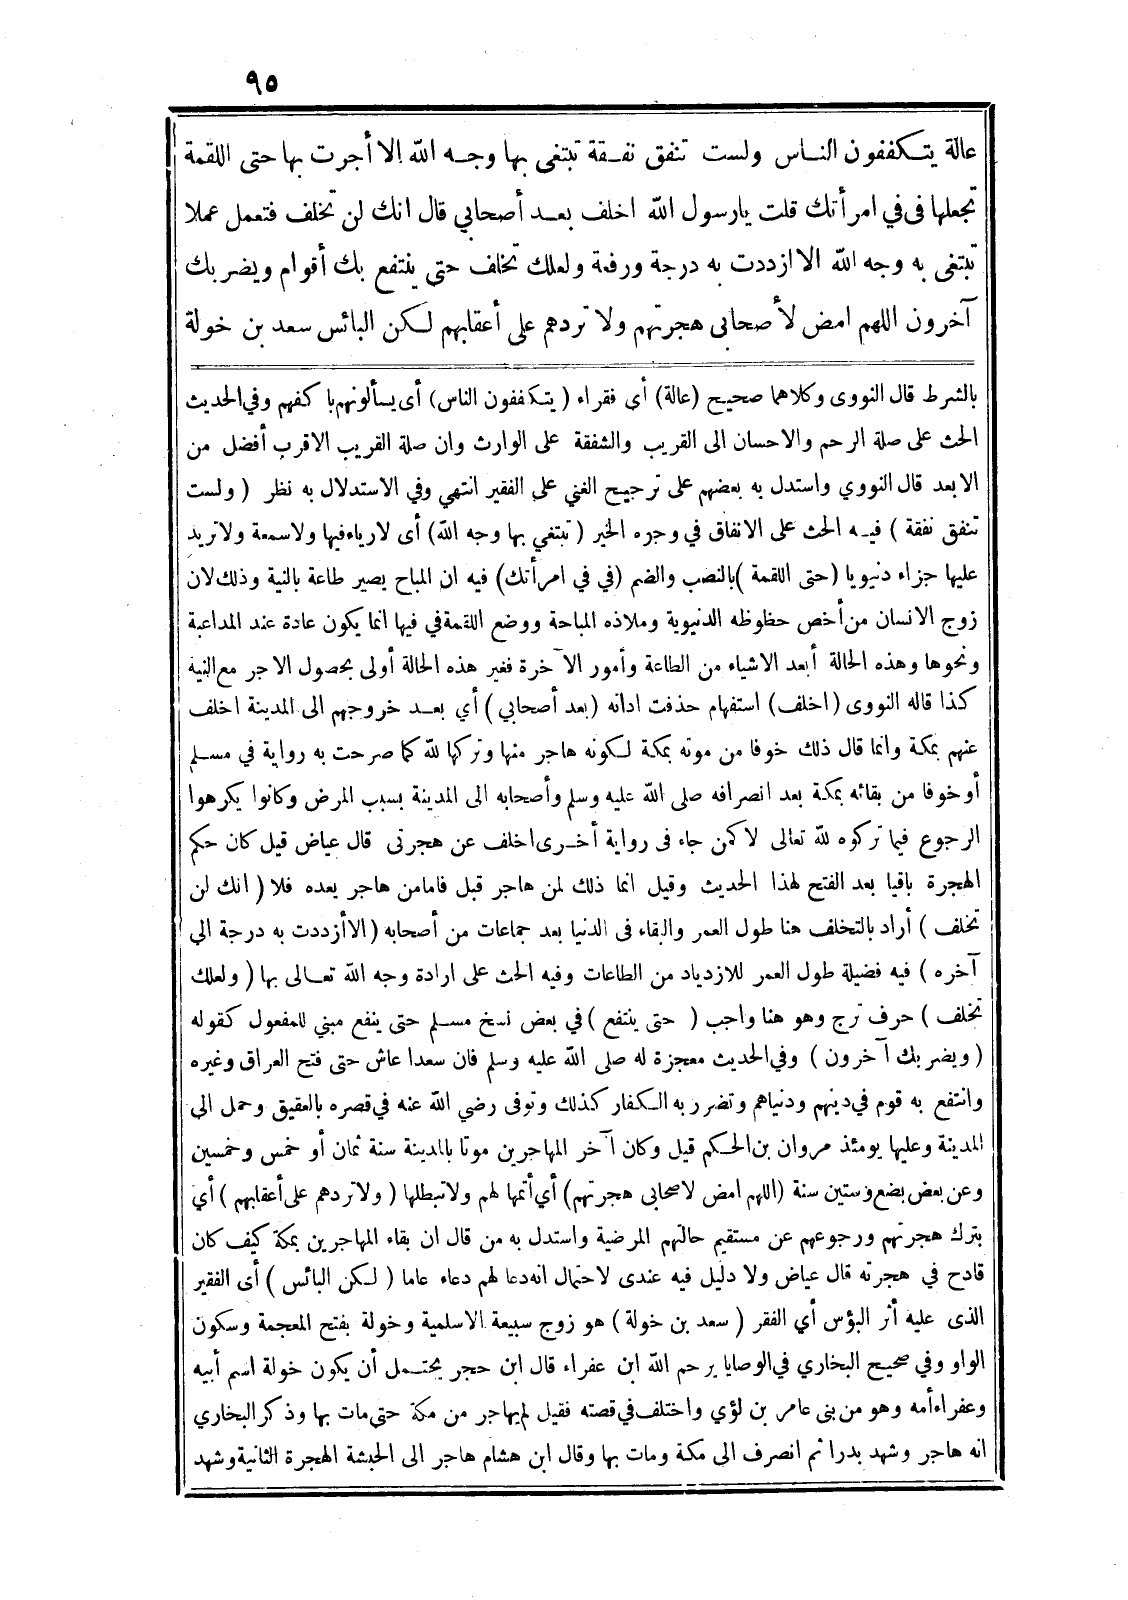 ٩٥
عالة يتكففون الناس ولست تنفق نفقة تبتغى بها وجه الله الا أجرت بها حتى اللقمة
تجعلها فى في امرأتك قلت يارسول الله اخلف بعد أصحابي قال انك لن تخلف فتعمل عملا
تبتغى به وجه الله الا ازددت به درجة ورفعة ولعلك تخلف حتى ينتفع بك أقوام ويضر بك
آخرون اللهم امض لأصحابى هجرتهم ولا تردهم على أعقابهم لكن البائس سعد بن خولة
بالشرط قال النووى وكلاهما صحيح (عالة) أي فقراء ( يتكففون الناس) أى يسألونهم با كفهم وفي الحديث
الحث على صلة الرحم والاحسان الى القريب والشفقة على الوارث وان صلة القريب الاقرب أفضل من
الابعد قال النووي واستدل به بعضهم على ترجيح الغني على الفقير انتهي وفي الاستدلال به نظر ( ولست
تنفق نفقة ) فيه الحث على الانفاق في وجره الخير ( تبتغي بها وجه الله) أى لا رياء فيها ولا سمعة ولا تريد
عليها جزاء دنيويا (حتى اللقمة )بالنصب والضم (في في امرأتك) فيه ان المباح يصير طاعة بالنية وذلك لان
زوج الانسان من أخص حظوظه الدنيوية وملاذه المباحة ووضع اللقمة في فيها انما يكون عادة عند المداعبة
ونحوها وهذه الحالة أبعد الاشياء من الطاعة وأمور الآخرة فغير هذه الحالة أولى بحصول الاجر مع النية
كذا قاله النووى (اخلف) استفهام حذفت اداته (بعد أصحابي ) أي بعد خروجهم الى المدينة اخلف
عنهم بمكة وانما قال ذلك خوفا من موته بمكة لكونه هاجر منها وتركها لله كما صرحت به رواية في مسلم
أو خوفا من بقائه بمكة بعد انصرافه صلى الله عليه وسلم وأصحابه الى المدينة بسبب المرض وكانوا يكرهوا
الرجوع فيما تركوه لله تعالى لاكمن جاء فى رواية أخرى اخلف عن هجرتى قال عياض قيل كان حكم
الهجرة باقيا بعد الفتح لهذا الحديث وقيل انما ذلك لمن هاجر قبل فامامن هاجر بعده فلا ( انك لن
تخلف ) أراد بالتخلف هنا طول العمر والبقاء فى الدنيا بعد جماعات من أصحابه (الاأزددت به درجة الي
آخره ) فيه فضيلة طول العمر للازدياد من الطاعات وفيه الحث على ارادة وجه الله تعالى بها ( ولعلك
تخلف ) حرف ترج وهو هنا واجب ( حتى ينتفع ) في بعض نسخ مسلم حتى ينفع مبني للمفعول كقوله
( ويضر بك آخرون ) وفي الحديث معجزة له صلى الله عليه وسلم فان سعدا عاش حتى فتح العراق وغيره
وانتفع به قوم في دينهم ودنياهم وتضرر به الكفار كذلك وتوفى رضي الله عنه في قصره بالعقيق وحمل الى
المدينة وعليها يومئذ مروان بن الحكم قيل وكان آخر المهاجرين موتا بالمدينة سنة ثمان أو خمس وخمسين
وعن بعض بضع وستين سنة (اللهم امض لاصحابى هجرتهم) أي أتمها لهم ولا تبطلها ( ولا تردهم على أعقابهم ) أي
بترك هجرتهم ورجوعهم عن مستقيم حالتهم المرضية واستدل به من قال ان بقاء المهاجرين بمكة كيف كان
قادح في هجرته قال عياض ولا دليل فيه عندى لاحتمال انه دعا لهم دعاء عاما ( لكن البائس ) أى الفقير
الذى عليه أثر البؤس أي الفقر ( سعد بن خولة ) هو زوج سبيعة الاسلمية وخولة بفتح المعجمة وسكون
الواو وفي صحيح البخاري في الوصايا يرحم الله ابن عفراء قال ابن حجر يحتمل أن يكون خولة اسم أبيه
وعفراء أمه وهو من بنى عامر بن لؤي واختلف في قصته فقيل لم يهاجر من مكة حتى مات بها وذكر البخاري
انه هاجر وشهد بدرا ثم انصرف الى مكة ومات بها وقال ابن هشام هاجر الى الحبشة الهجرة الثانية وشهد